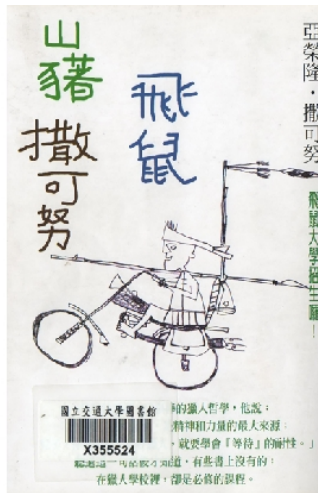 山豬
飛鼠
撒可努
亞榮隆・撒可努
飛鼠大學招生
國立交通大學圖書館
X355524
的獵人哲學,他說:
精神和力量的最大來源
,就要學會『等待』的耐性。」
有些書上沒有的,
在獵人學校裡,都是必修的課程。